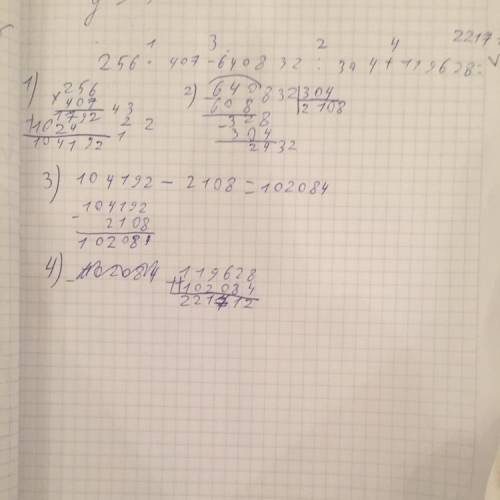 2217
1 3 2 4
256 · 407 - 640832 : 304 + 119628 =
1)
256
× 407
1792
+ 1024
104192
4 3
2 2
1
2)
640832 | 304
608 | 2108
- 328
- 304
2432
3) 104192 - 2108 = 102084
- 104192
2108
102084
4)
119628
+ 102084
221712